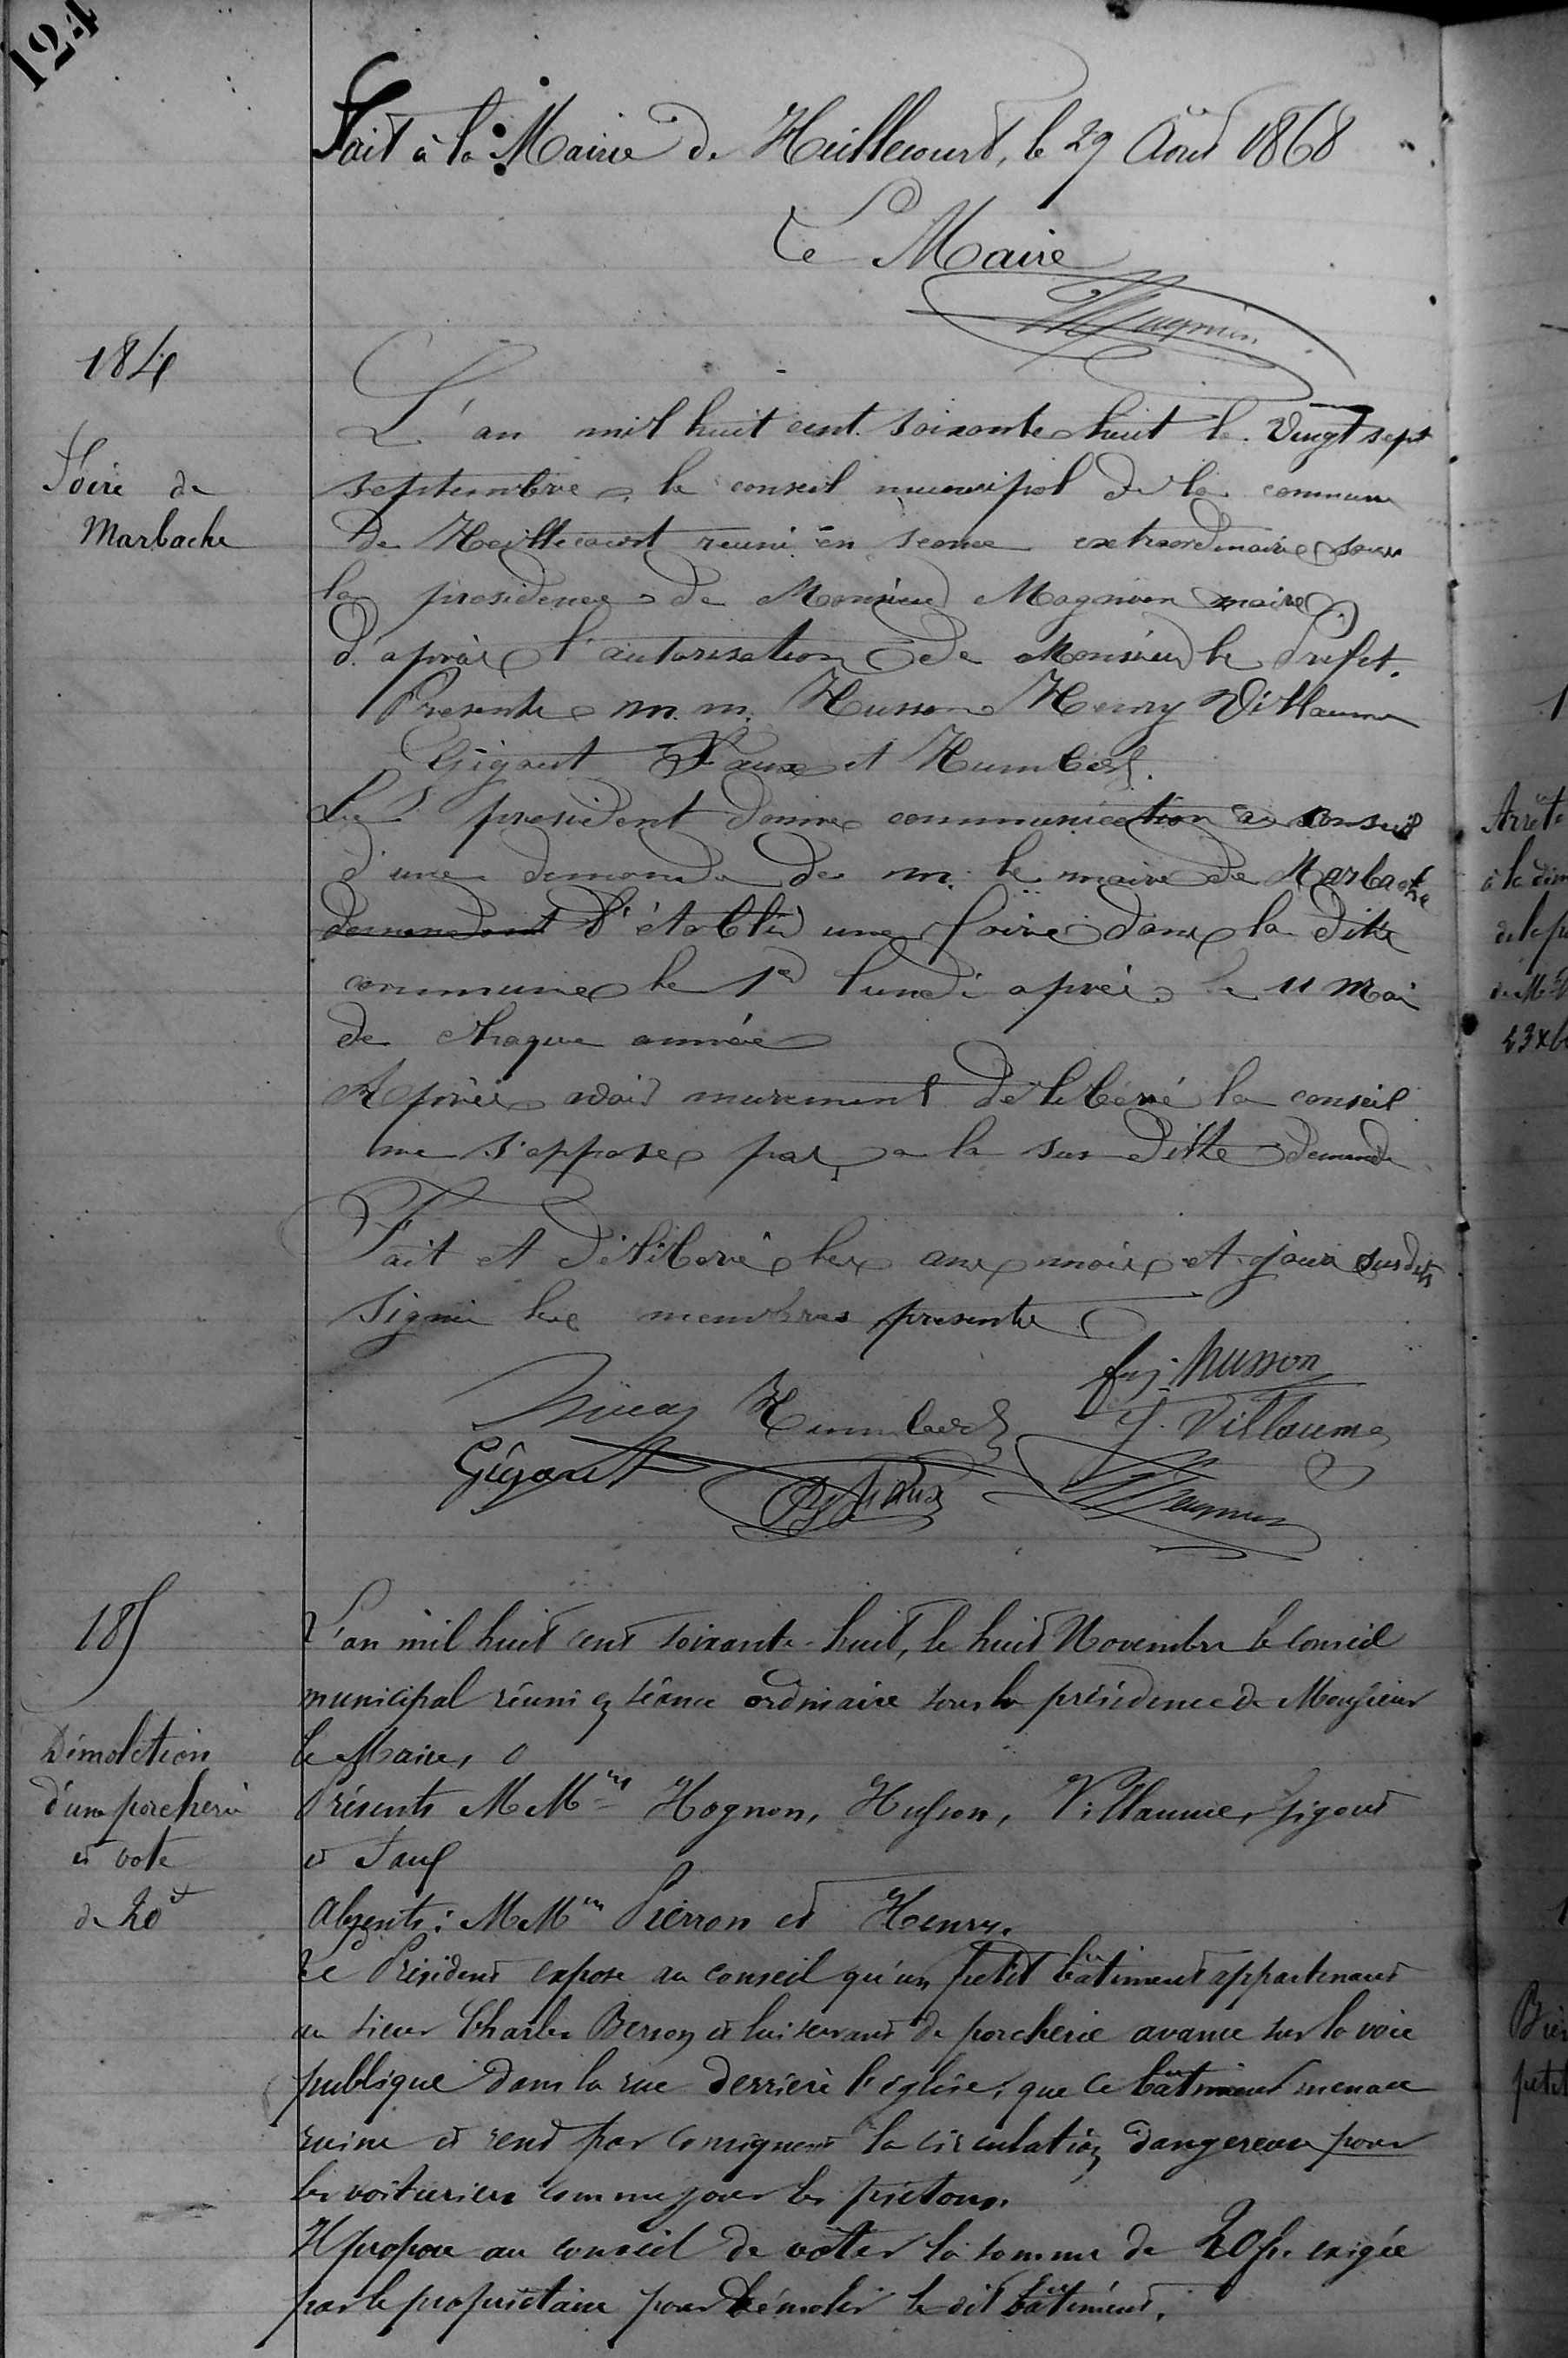 124
Fait à la Mairie de Heillecourt, le 29 Août 1868
Le Maire
184
Foire de
Marbache
L'an mil huit cent soixante huit le vingt sept
septembre, le conseil municipal de la commune
de Heillecourt reuni en seance extraordinaire sous
la presidence de Monsieur Magnien maire
d'après l'autorisation de Monsieur le Prefet.
Presents m.m. Husson Henry Villaume
Gigout Faux et Humbert.
Le president donne communication au conseil
d'une demande de m. le maire de Marbache
demandant d'établir une foire dans la ditte
commune le 1er lundi après le 11 Mai
de chaque année
Après avoir murement delibéré le conseil
ne s'oppose pas a la sus ditte demande
Fait et délibéré les ans mois et jour susdits
signé les membres presents
Humbert
Eug. Husson
J. Villaume
Gigout
Faux
185
Démolition
d'une porcherie
et vote
de 20f
L'an mil huit cent soixante-huit, le huit Novembre le Conseil
municipal réuni en séance ordinaire sous la présidence de Monsieur
le Maire,
Présents MMrs Hognon, Husson, Villaume, Gigout
et Faux
Absents: MMrs Pierron et Henry.
Le Président expose au conseil qu'un petit bâtiment appartenant
au sieur Charles Berson et lui servant de porcherie avance sur la voie
publique dans la rue derrière l'église, que ce bâtiment menace
ruine et rend par conséquent la circulation dangereuse pour
les voituriers comme pour les piétons.
Il propose au conseil de voter la somme de 20f. exigée
par le propriétaire pour démolir le dit bâtiment.
Arrêté
à la dém
de la po